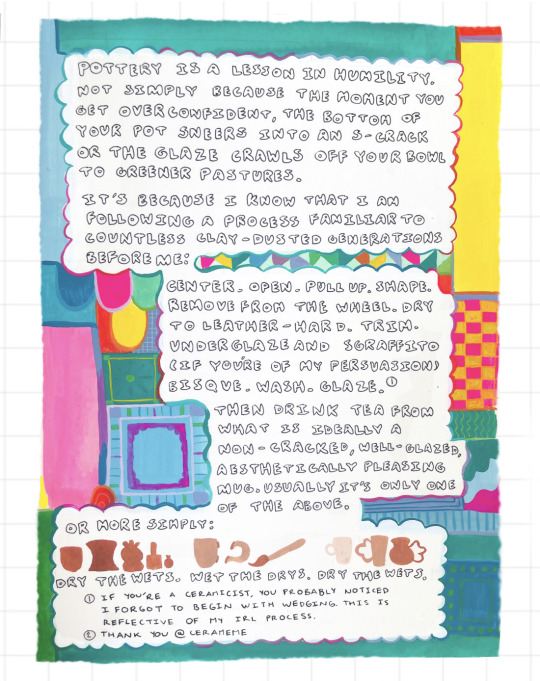 POTTERY IS A LESSON IN HUMILITY.
NOT SIMPLY BECAUSE THE MOMENT YOU
GET OVERCONFIDENT, THE BOTTOM OF
YOUR POT SNEERS INTO AN S-CRACK
OR THE GLAZE CRAWLS OFF YOUR BOWL
TO GREENER PASTURES.
IT'S BECAUSE I KNOW THAT I AM
FOLLOWING A PROCESS FAMILIAR TO
COUNTLESS CLAY-DUSTED GENERATIONS
BEFORE ME:
CENTER. OPEN. PULL UP. SHAPE.
REMOVE FROM THE WHEEL. DRY
TO LEATHER-HARD. TRIM.
UNDERGLAZE AND SGRAFFITO
(IF YOU'RE OF MY PERSUASION)
BISQUE. WASH. GLAZE.①
THEN DRINK TEA FROM
WHAT IS IDEALLY A
NON-CRACKED, WELL-GLAZED,
AESTHETICALLY PLEASING
MUG. USUALLY IT'S ONLY ONE
OF THE ABOVE.
OR MORE SIMPLY:
DRY THE WETS. WET THE DRYS. DRY THE WETS.
① IF YOU'RE A CERAMICIST, YOU PROBABLY NOTICED
I FORGOT TO BEGIN WITH WEDGING. THIS IS
REFLECTIVE OF MY IRL PROCESS.
② THANK YOU @CERAMEME